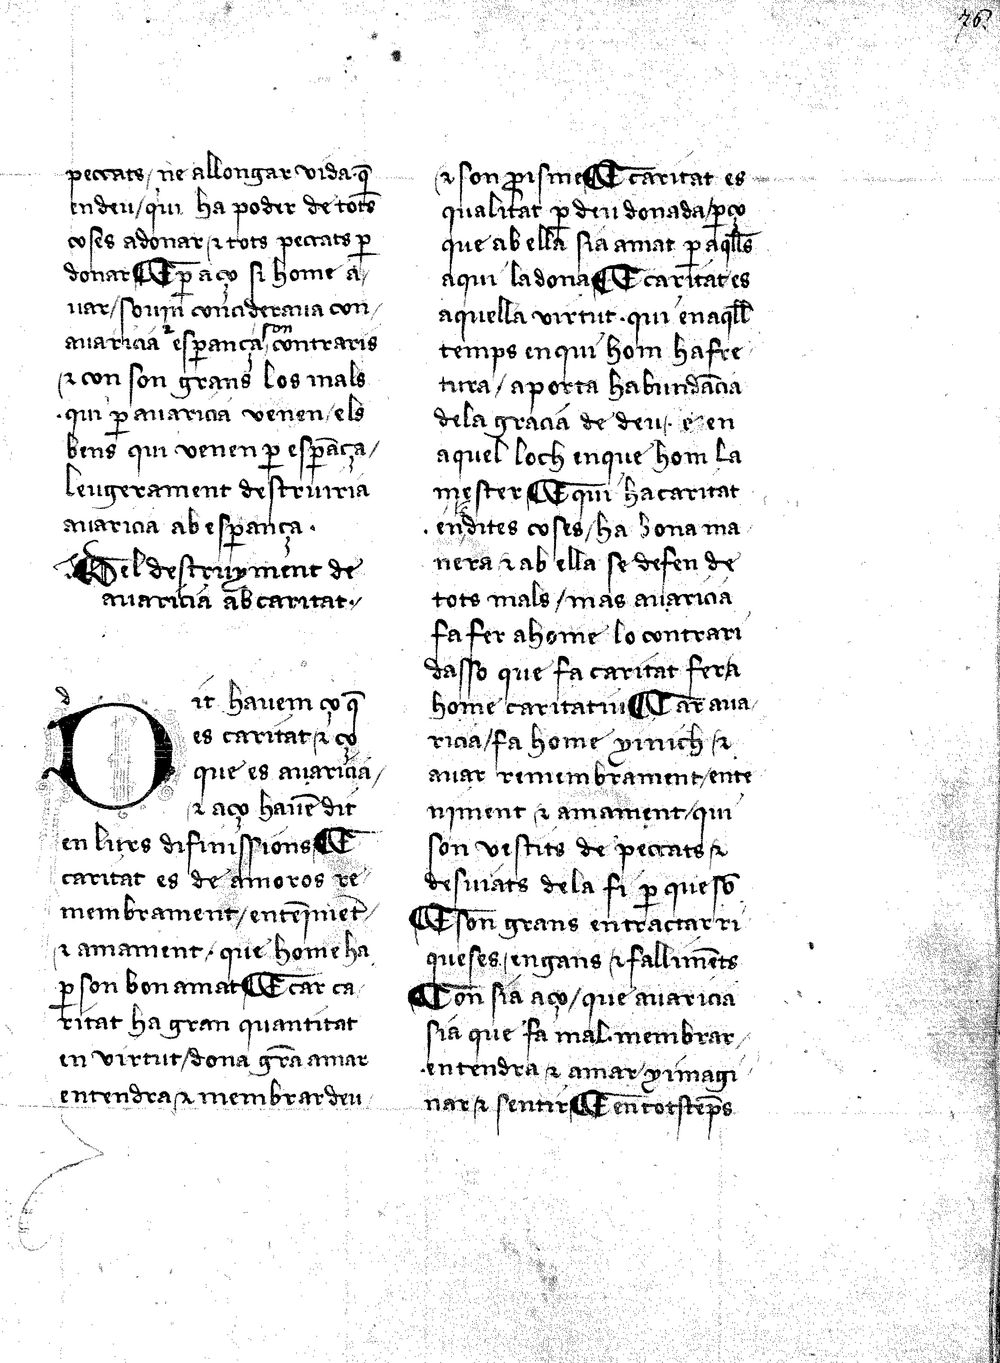 76.
peccats / ne allongar vida · q̄
en deu / qui ha poder de totes
coses a donar / ⁊ tots peccats ꝑ
donar ¶ E ꝑ aço si home a
uar / souin concideraua con /
auaricia ⁊ esꝑança son contraris
⁊ con son grans los mals
· qui ꝑ auaricia venen / els
bens qui venen ꝑ esꝑāça /
leugerament destruiria
auaricia ab esꝑança ·
Del destruyment de
auaricia ab caritat ·/
d
Dit hauem ço q̄
es caritat ⁊ ço
que es auaricia /
⁊ aço hauē dit
en lurs difinissions ¶ E
caritat es de amoros re
membrament / entenimēt /
⁊ amament / que home ha
ꝑ son bon amat ¶ E car ca
ritat ha gran quantitat
en virtut / dona grā amar
entendra ⁊ membrar deu
⁊ son ꝓisme ¶ E caritat es
qualitat ꝑ deu donada / ꝑço
que ab ella sia amat ꝑ aq̄lls
a qui la dona ¶ E caritat es
aquella virtut · qui en aq̄ll
temps en qui hom ha fre
tura / aporta habundācia
de la gracia de deu · e en
aquel loch en que hom la
mester ¶ E qui ha caritat
· en dites coses / ha bona ma
nera ⁊ ab ella se defen de
tots mals / mas auaricia
fa fer a home lo contrari
dasso que fa caritat fer a
home caritatiu ¶ Car aua
ricia / fa home yinich ⁊
auar remembrament / ente
niment ⁊ amament / qui
son vestits de peccats ⁊
desuiats de la fi ꝑ que sō
¶ E son grans en tractar ri
queses / engans ⁊ fallimēts
¶ Con sia aço / que auaricia
sia que fa mal · membrar /
· entendra ⁊ amar / yimagi
nar ⁊ sentir ¶ E en tots tēps